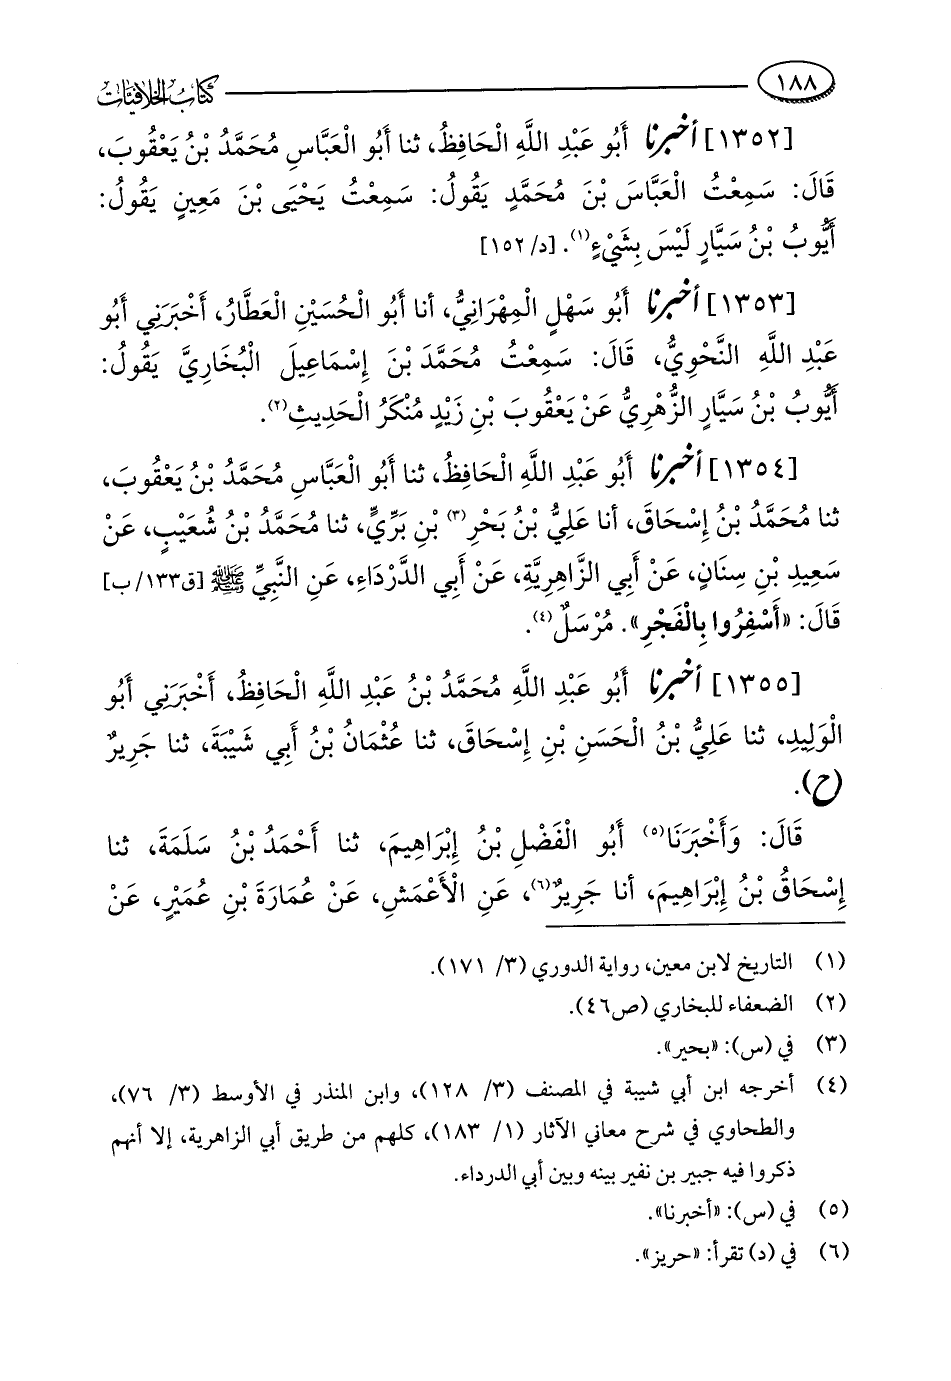 ١٨٨
كتاب الخلافيات
[١٣٥٢] أخبرنا أَبُو عَبْدِ اللَّهِ الْحَافِظُ، ثنا أَبُو الْعَبَّاسِ مُحَمَّدُ بْنُ يَعْقُوبَ،
قَالَ: سَمِعْتُ الْعَبَّاسَ بْنَ مُحَمَّدٍ يَقُولُ: سَمِعْتُ يَحْيَى بْنَ مَعِينٍ يَقُولُ:
أَيُّوبُ بْنُ سَيَّارٍ لَيْسَ بِشَيْءٍ(١). [د/ ١٥٢]
[١٣٥٣] أخبرنا أَبُو سَهْلٍ الْمِهْرَانِيُّ، أنا أَبُو الْحُسَيْنِ الْعَطَّارُ، أَخْبَرَنِي أَبُو
عَبْدِ اللَّهِ النَّحْوِيُّ، قَالَ: سَمِعْتُ مُحَمَّدَ بْنَ إِسْمَاعِيلَ الْبُخَارِيَّ يَقُولُ:
أَيُّوبُ بْنُ سَيَّارٍ الزُّهْرِيُّ عَنْ يَعْقُوبَ بْنِ زَيْدٍ مُنْكَرُ الْحَدِيثِ(٢).
[١٣٥٤] أخبرنا أَبُو عَبْدِ اللَّهِ الْحَافِظُ، ثنا أَبُو الْعَبَّاسِ مُحَمَّدُ بْنُ يَعْقُوبَ،
ثنا مُحَمَّدُ بْنُ إِسْحَاقَ، أنا عَلِيُّ بْنُ بَحْرِ(٣) بْنِ بَرِّيٍّ، ثنا مُحَمَّدُ بْنُ شُعَيْبٍ، عَنْ
سَعِيدِ بْنِ سِنَانٍ، عَنْ أَبِي الزَّاهِرِيَّةِ، عَنْ أَبِي الدَّرْدَاءِ، عَنِ النَّبِيِّ ﷺ [ق١٣٣/ ب]
قَالَ: «أَسْفِرُوا بِالْفَجْرِ». مُرْسَلٌ(٤).
[١٣٥٥] أخبرنا أَبُو عَبْدِ اللَّهِ مُحَمَّدُ بْنُ عَبْدِ اللَّهِ الْحَافِظُ، أَخْبَرَنِي أَبُو
الْوَلِيدِ، ثنا عَلِيُّ بْنُ الْحَسَنِ بْنِ إِسْحَاقَ، ثنا عُثْمَانُ بْنُ أَبِي شَيْبَةَ، ثنا جَرِيرٌ
(ح).
قَالَ: وَأَخْبَرَنَا(٥) أَبُو الْفَضْلِ بْنُ إِبْرَاهِيمَ، ثنا أَحْمَدُ بْنُ سَلَمَةَ، ثنا
إِسْحَاقُ بْنُ إِبْرَاهِيمَ، أنا جَرِيرٌ(٦)، عَنِ الْأَعْمَشِ، عَنْ عُمَارَةَ بْنِ عُمَيْرٍ، عَنْ
(١) التاريخ لابن معين، رواية الدوري (٣/ ١٧١).
(٢) الضعفاء للبخاري (ص٤٦).
(٣) في (س): «بحير».
(٤) أخرجه ابن أبي شيبة في المصنف (٣/ ١٢٨)، وابن المنذر في الأوسط (٣/ ٧٦)،
والطحاوي في شرح معاني الآثار (١/ ١٨٣)، كلهم من طريق أبي الزاهرية، إلا أنهم
ذكروا فيه جبير بن نفير بينه وبين أبي الدرداء.
(٥) في (س): «أخبرنا».
(٦) في (د) تقرأ: «حريز».